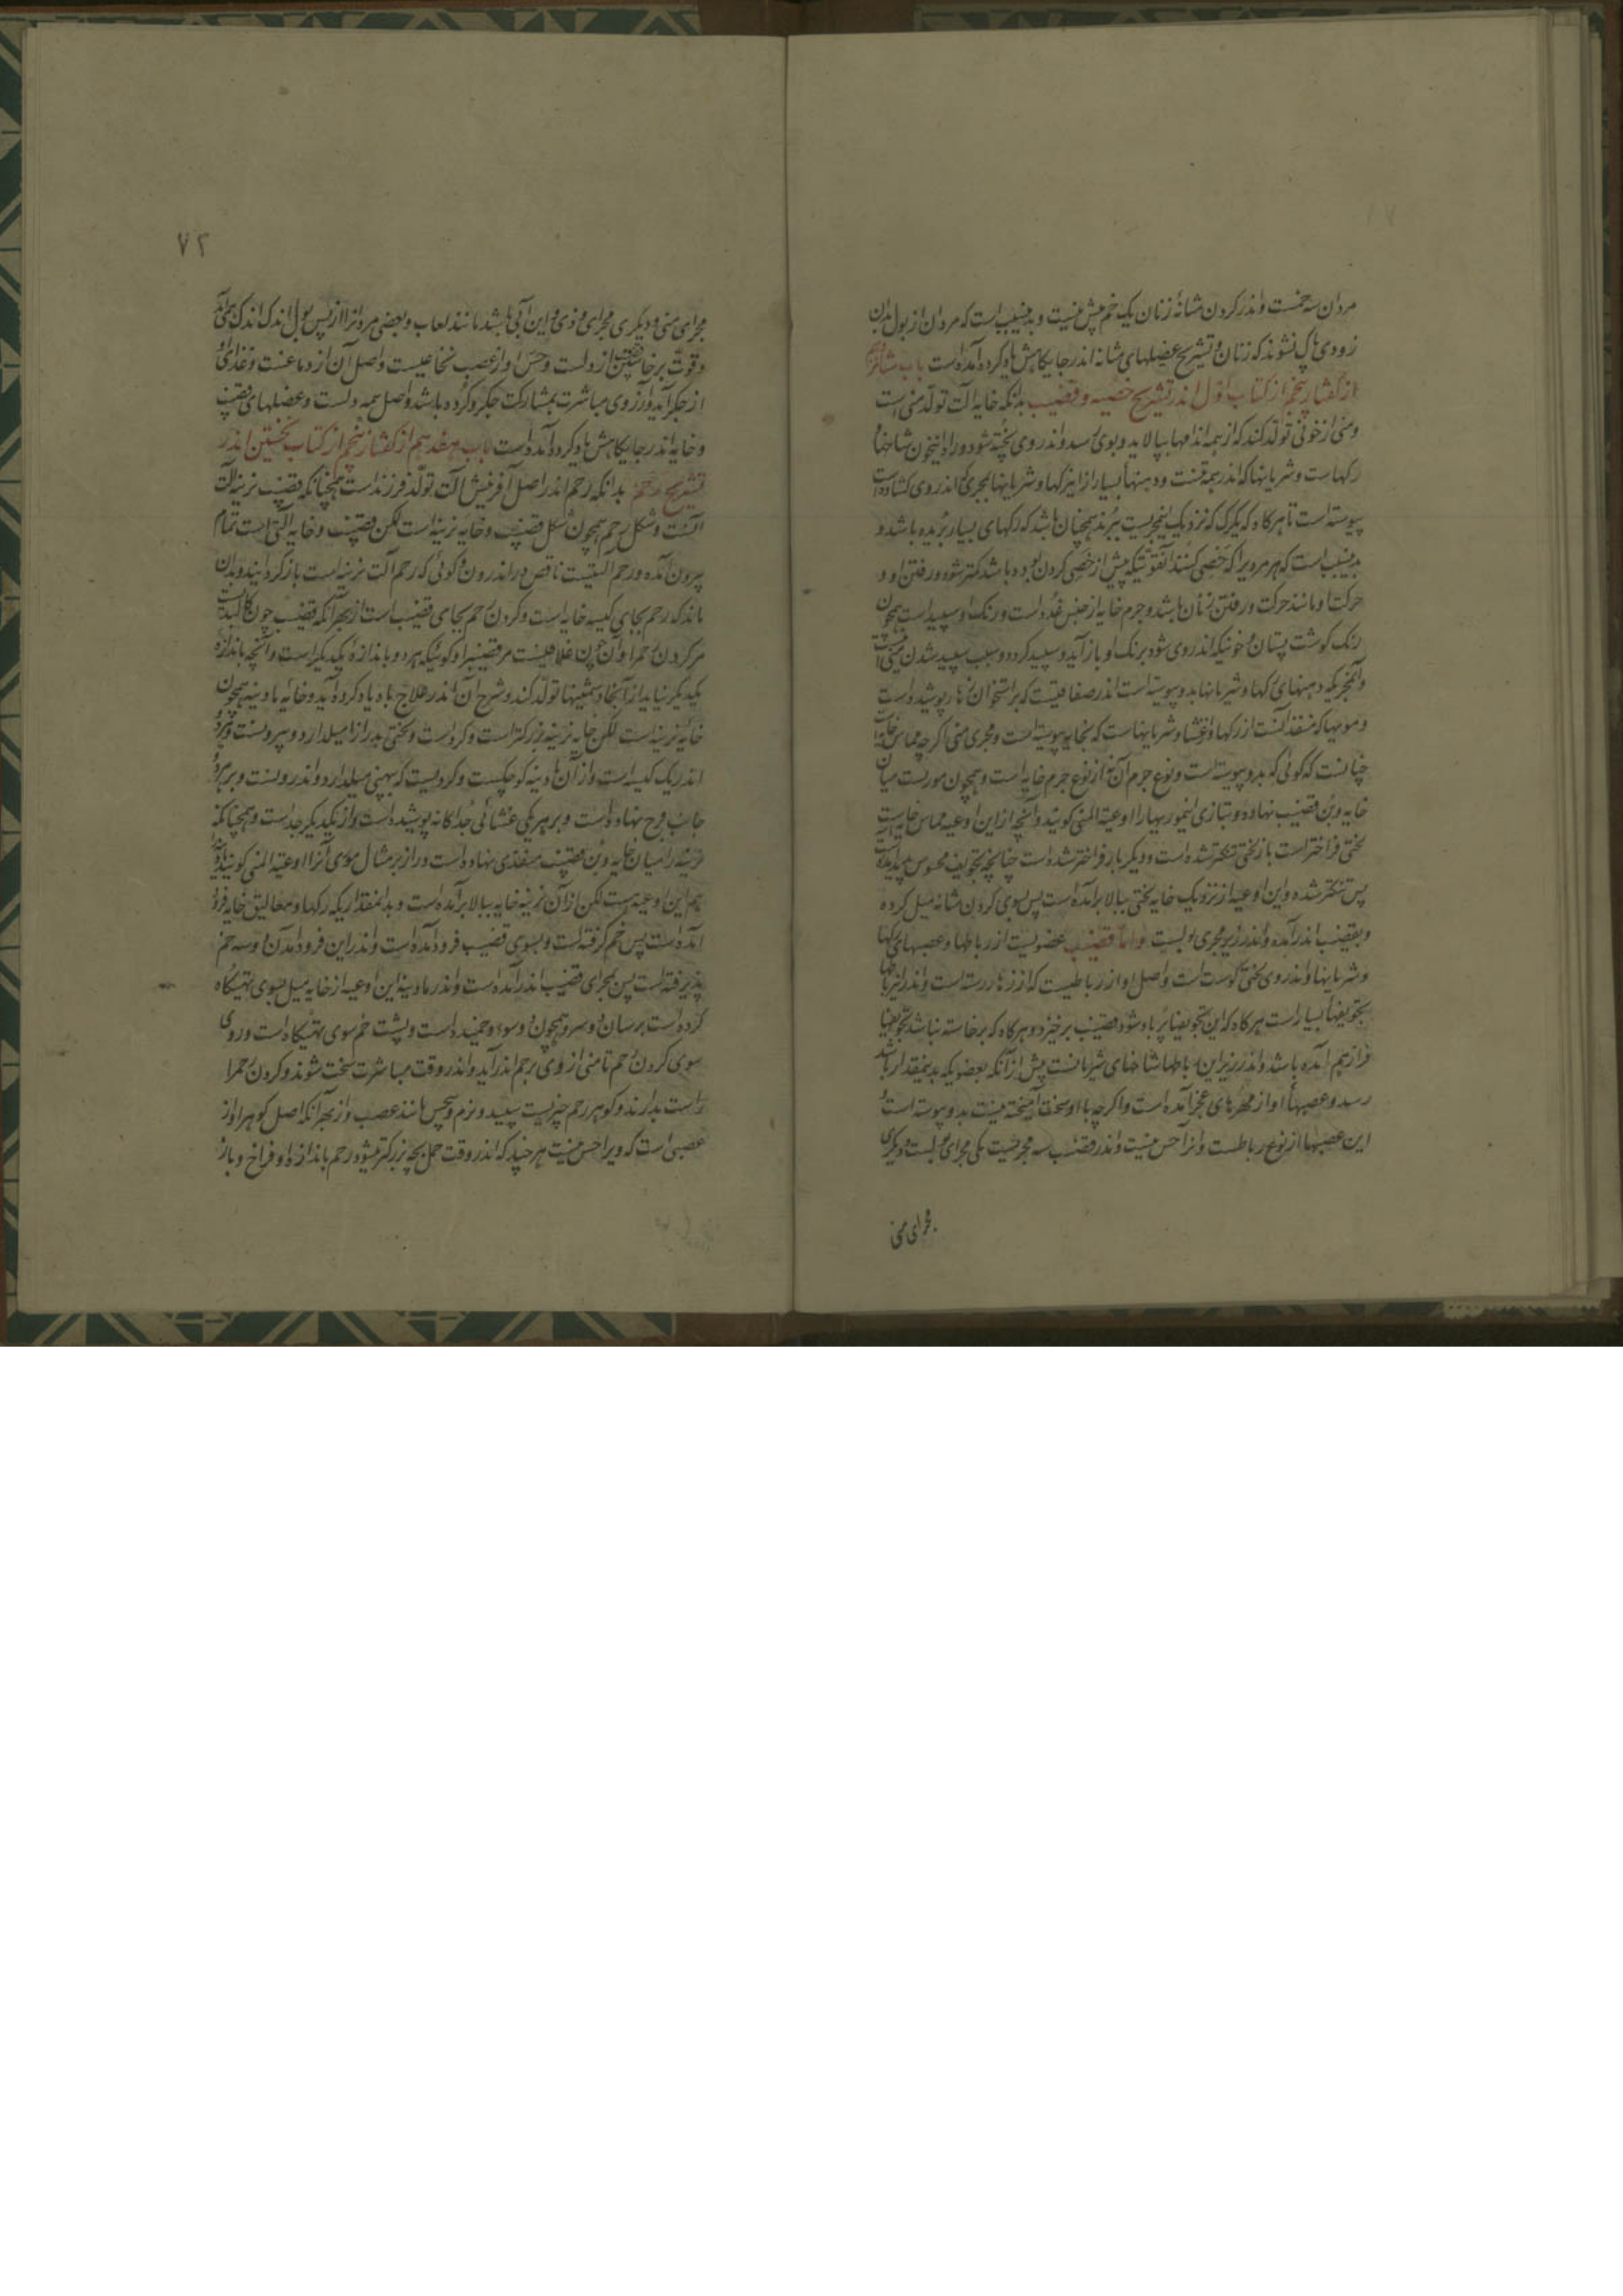 مردان سه خمست و اندر کردن مثانهٔ زنان یک خم بیش نیست و بدینسبب است که مردان از بول بدان
زودی پاک نشوند که زنان و تشریح عضلهای مثانه اندر جایکاهش یاد کرده آمده است باب شانزدهم
از کفتار پنجم از کتاب اول اندر تشریح خصیه و قضیب بدانکه خایه آلت تولد منی است
و منی از خونی تولد کند که از همه اندامها بپالاید و بوی رسد و اندر وی پخته شود و راه اینخون شاخهای
رکهاست و شریانها که اندر همه تنست و دهنهأ بسیار از اینرکها و شریانها بمجرئی اندر وی کشاده است
پیوسته است تا هرکاه که یکرک که نزدیک اینمجریست ببرند همچنان باشد که رکهای بسیار بریده باشد و
بدینسبب است که هر مردیرا که خصی کنند آنقوتیکه پیش از خصی کردن بوده باشد کمتر شود و رفتن او و
حرکت او مانند حرکت و رفتن زنان باشد و جرم خایه از جنس غده است و رنک او سپید است همچون
رنک کوشت پستان و خونیکه اندر وی شود برنک او باز آید و سپید کردد و سبب سپید شدن منی
و آنمجریکه دهنهای رکها و شریانها بدو پیوسته است اندر صفاقیست که بر استخوان زهار پوشیده است
و مویها که منفذ آنست از رکها و غشا و شریانهاست که بخایه پیوسته است و مجری منی اکرچه مماس خایه
چنانست که کوئی که بدو پیوسته است و نوع جرم آن نه از نوع جرم خایه است و همچون موریست میان
خایه و بن قضیب نهاده و بتازی اینموریهارا اوعیة المنی کویند و آنچه از این اوعیه مماس خایه است
لختی فراختر است باز لختی تنکتر شده است و دیکر بار فراختر شده است چنانچه تجویف محسوس پدید آمده است
پس تنکتر شده و این اوعیه از نزدیک خایه لختی ببالا برآمده است پس بسوی کردن مثانه میل کرده
و بقضیب اندر آمده و اندر زیر مجری بولست و اما قضیب عضویست از رباطها و عصبهای رکها
و شریانها و اندر وی لختی کوشت است و اصل او از رباطیست که از زهار رسته است و اندر اینرباطها
تجویفها بسیار است هرکاه که این تجویفها پر باد شود قضیب برخیزد و هرکاه که برخاسته نباشد تجویفها
فراز هم آمده باشد و اندر زیر این رباطها شاخهای شریانست بیش از آنکه بعضویکه بدینمقدار باشد
رسد و عصبهأ او از مهرهای عجز آمده است و اکرچه با او سخت آمیخته نیست بدو پیوسته است و
این عصبها از نوع رباطست و آنرا حس نیست و اندر قضیب سه مجریست یکی مجرای بولست و دیکری
مجرای منی
٧٢
مجرای منی و دیکری مجرای مذی و این آبی باشد مانند لعاب و بعضی مردانرا از پس بول اندک اندک همی آید
و قوت برخاستن قضیب از دلست و حس او از عصب نخاعیست و اصل آن از دماغست و غذای او
از جکر آید و آرزوی مباشرت بمشارکت جکر و کرده باشد و اصل همه دلست و عضلهای قضیب
و خایه اندر جایکاهش یاد کرده آمده است باب هفدهم از کفتار پنجم از کتاب نخستین اندر
تشریح رحم بدانکه رحم اندر اصل آفرینش آلت تولد فرزند است همچنانکه قضیب نرینه آلت
آنست و شکل رحم همچون شکل قضیب و خایه نرینه است لکن قضیب و خایه آلتی است تمام
بیرون آمده و رحم آلتیست ناقص در اندرون و کوئی که رحم آلت نرینه است باز کردانیده و بدان
ماند که رحم بجای کیسه خایه است و کردن رحم بجای قضیب است از بهر آنکه قضیب چون کالبد است
مر کردن رحمرا و آن چون غلافیست مر قضیبرا و کوئیکه هر دو باندازه یکدیکر است و آنچه باندازه
یکدیکر نیاید از آنجا دشمنیها تولد کند و شرح آن اندر علاج باه یاد کرده آید و خایه مادینه همچون
خایهٔ نرینه است لکن خایه نرینه بزرکتر است و کرداست و لختی بدرازا میل دارد و بیرونست و هر دو
اندر یک کیسه است و از آن مادینه کوچکست و کردیست که بپهنی میلدارد و اندرونست و بر هر دو
جانب فرج نهاده است و بر هر یکی غشائی جداکانه پوشیده است و از یکدیکر جداست و همچنانکه
نرینه را میان خایه و بن قضیب منفذی نهاده است و دراز بر مثال موری آنرا اوعیة المنی کویند
هم این اوعیه هست لکن از آن نرینه خایه ببالا برآمده است و بدانمقدار یکه رکها و معالیق خایه فرود
آمده است پس خم کرفته است و بسوی قضیب فرود آمده است و اندر این فرود آمدن دو سه خم
پذیرفته است پس بمجرای قضیب اندر آمده است و اندر مادینه این اوعیه از خایه میل بسوی تهیکاه
کرده است برسان دو سرو همچون دو سوء و خمیده است و پشت خم سوی تهیکاه است و روی
سوی کردن رحم تا منی از وی برحم اندر آید و اندر وقت مباشرت سخت شوند و کردن رحمرا
راست بدارند و کوهر رحم چیزیست سپید و نرم و بیحس مانند عصب و از بهر آنکه اصل کوهر او از
عصبی است که ویرا حس نیست هرچند که اندر وقت حمل بچه بزرکتر میشود رحم باندازه او فراخ و باز